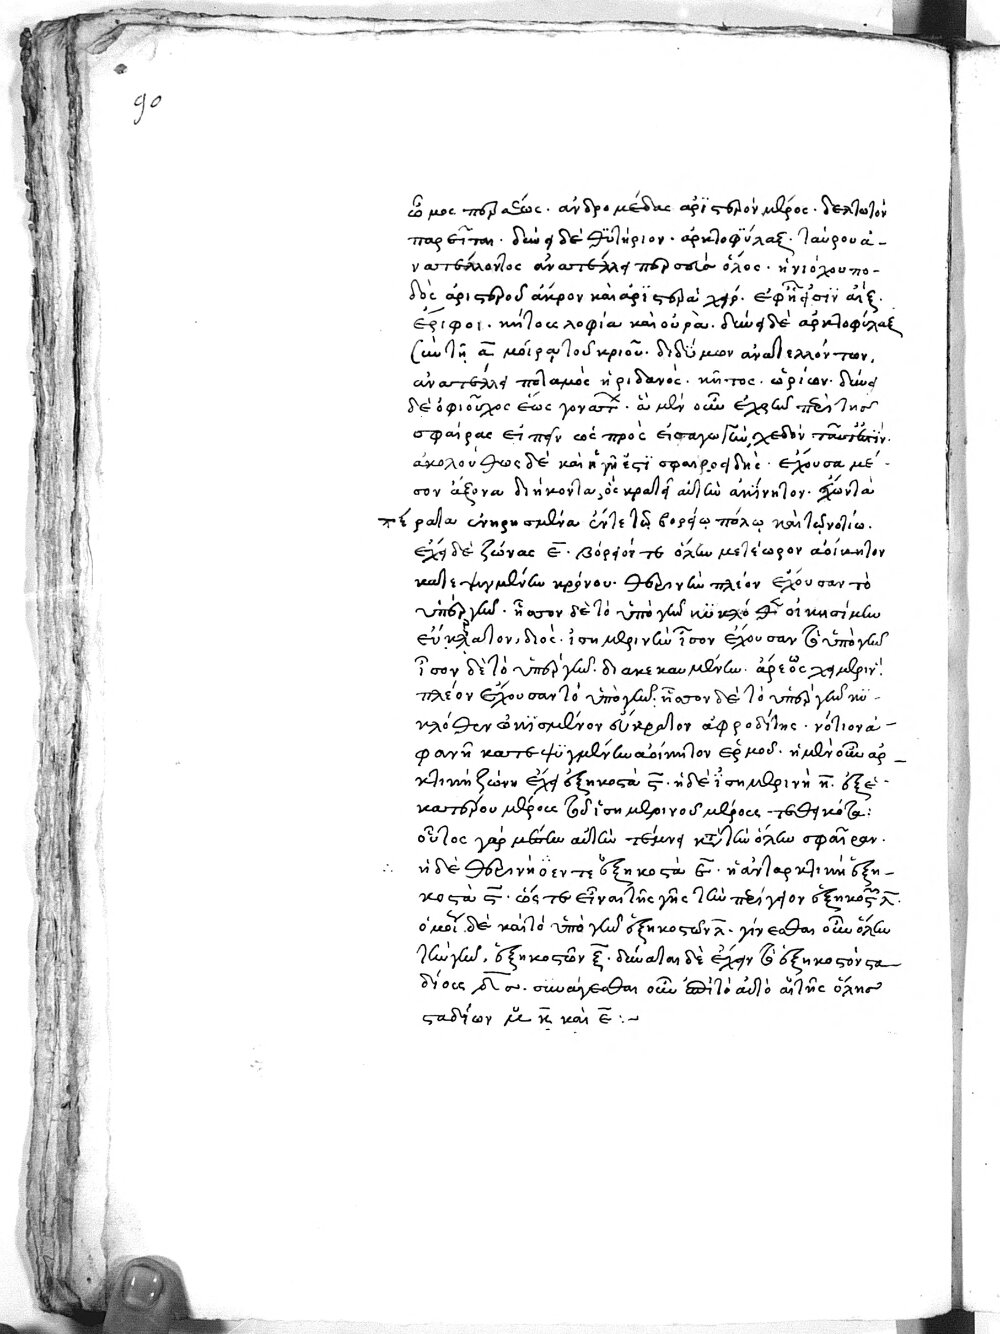 90
ὦμος περσέως · ἀνδρομέδας ἀρϊστερὸν μέρος · δελτωτὸν
παρεῖται · δύνει δὲ θυτήριον · ἀρκτοφύλαξ · ταύρου ἀ-
νατέλλοντος ἀνατέλλει περσεὺς ὅλος · ἡνιόχου πο-
δὸς ἀριστεροῦ ἄκρον καὶ ἀρϊστερὰ χεὶρ · ἐφ' ἧς εἰσϊν αἲξ ·
ἔριφοι · κήτους λοφία καὶ οὐρὰ · δύνει δὲ ἀρκτοφύλαξ
σὺν τῇ α μοίρᾳ τοῦ κριοῦ · διδύμων ἀνατελλόντων,
ἀνατέλλει ποταμὸς ἠριδανὸς · κῆτος · ὠρίων · δύνει
δὲ ὀφιοῦχος ἕως γονάτων · ἃ μὲν οὖν ἔχομεν περὶ τῆς
σφαίρας εἰπεῖν ὡς πρὸς εἰσαγωγὴν σχεδὸν ταῦτά ἐστϊν ·
ἀκολούθως δὲ καὶ ἡ γῆ ἐστϊ σφαιροειδὴς · ἔχουσα μέ-
σον ἄξονα διήκοντα, ὃς κρατεῖ αὐτὴν ἀκίνητον · ἔχοντα
πέρατα ἐνηρεισμένα ἔν τε τῷ βορείῳ πόλῳ καὶ τῷ νοτίῳ.
ἔχει δὲ ζώνας ε · βόρειόν τε ὅλην μετέωρον ἀοίκητον
κατεψυγμένην κρόνου · θερινὴν πλέον ἔχουσαν τὸ
ὑπὲρ γῆν · ἧττον δὲ τὸ ὑπὸ γῆν κύκλόθεν οἰκησίμην
εὔκρατον, διὸς · ἰσημερινὴν ἴσον ἔχουσαν τὸ ὑπὸ γῆν
ἴσον δὲ τὸ ὑπὲρ γῆν · διακεκαυμένην · ἄρεως χειμερινὴν
πλέον ἔχουσαν τὸ ὑπὸ γῆν · ἧττον δὲ τὸ ὑπὲρ γῆν κυ-
κλόθεν ᾠκϊσμένον εὔκρατον ἀφροδίτης · νότιον ἀ-
φανῆ κατεψϋγμένην ἀοίκητον ἑρμοῦ · ἡ μὲν οὖν ἀρ-
κτικὴ ζώνη ἔχει ἑξηκοστὰ ς · ἡ δὲ ἰσημερινὴ η · ἐξ ἑ-
κατέρου μέρους τοῦ ἰσημερινοῦ μέρους τεθηκότα :
οὗτος γὰρ μέσην αὐτὴν τέμνει κατὰ τὴν ὅλην σφαῖραν ·
ἡ δὲ θερινὴ ὅθεν τε ἑξηκοστὰ ε · ἡ ἀνταρκτικὴ ἑξη-
κοστὰ ς · ὥς τε εἶναι τῆς γῆς τὴν περίγειον ἑξηκοστῶν λ ·
ὁμοίως δὲ καὶ τὸ ὑπὸ γῆν ἑξηκοστῶν λ · γίνεσθαι οὖν ὅλην
τὴν γῆν, ἑξηκοστῶν ξ · δύναται δὲ ἔχειν τὸ ἑξηκοστὸν στα-
δίους δ σ · συνάγεσθαι οὖν ἐπὶ τὸ αὐτὸ αὐτῆς ὅλης
σταδίων μ κ καὶ ε :~